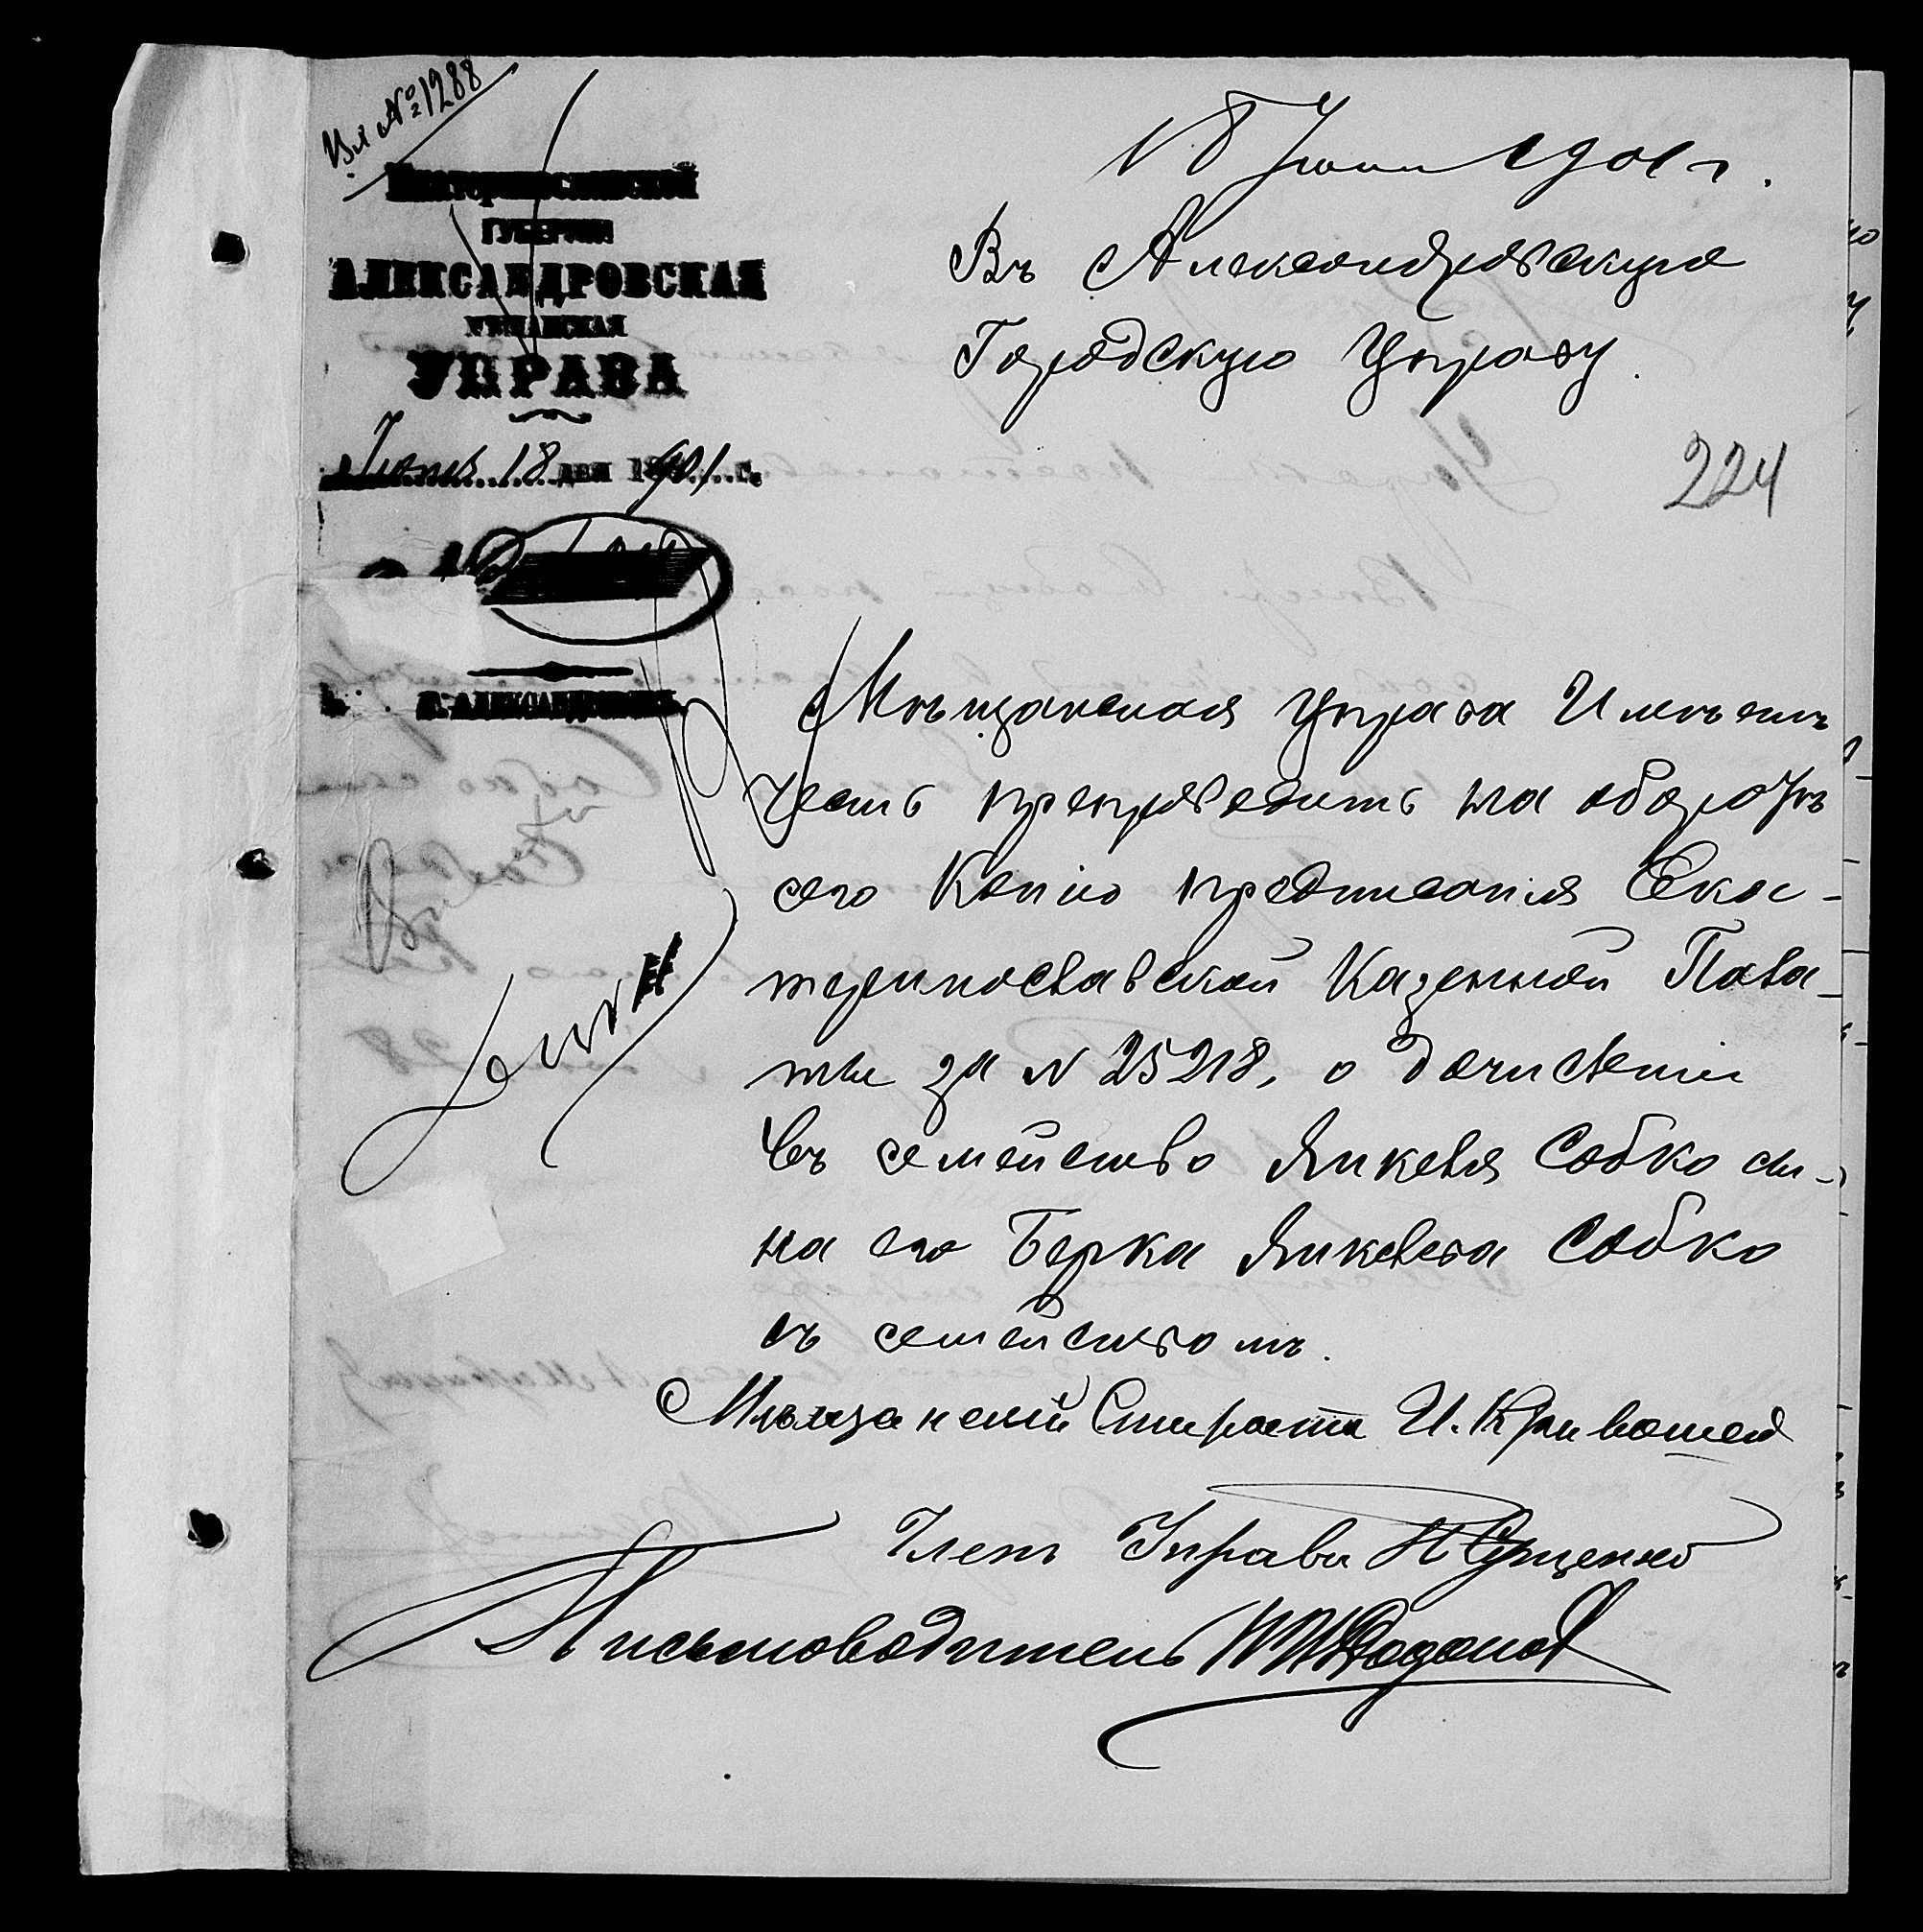 Вх № 1288
Екатеринославской
ГУБЕРНІИ
АЛЕКСАНДРОВСКАЯ
МѢЩАНСКАЯ
УПРАВА
Іюня 18 дня 1901 г.
Г. АЛЕКСАНДРОВСКЪ
18 Іюня 1901 г.
Въ Александровскую
Городскую Управу.
224
Мѣщанская Управа Имѣетъ
честь препроводить на оборотѣ
сего Копію предписанія Екас-
теринославской Казенной Пала-
ты за N 25218, о дочисленіи
въ семейство Янкеля Собко сы-
на его Берка Янкелева Собко
съ семействомъ.
Мѣщанскій Староста И. Кривошей
Членъ Управы
Письмоводитель